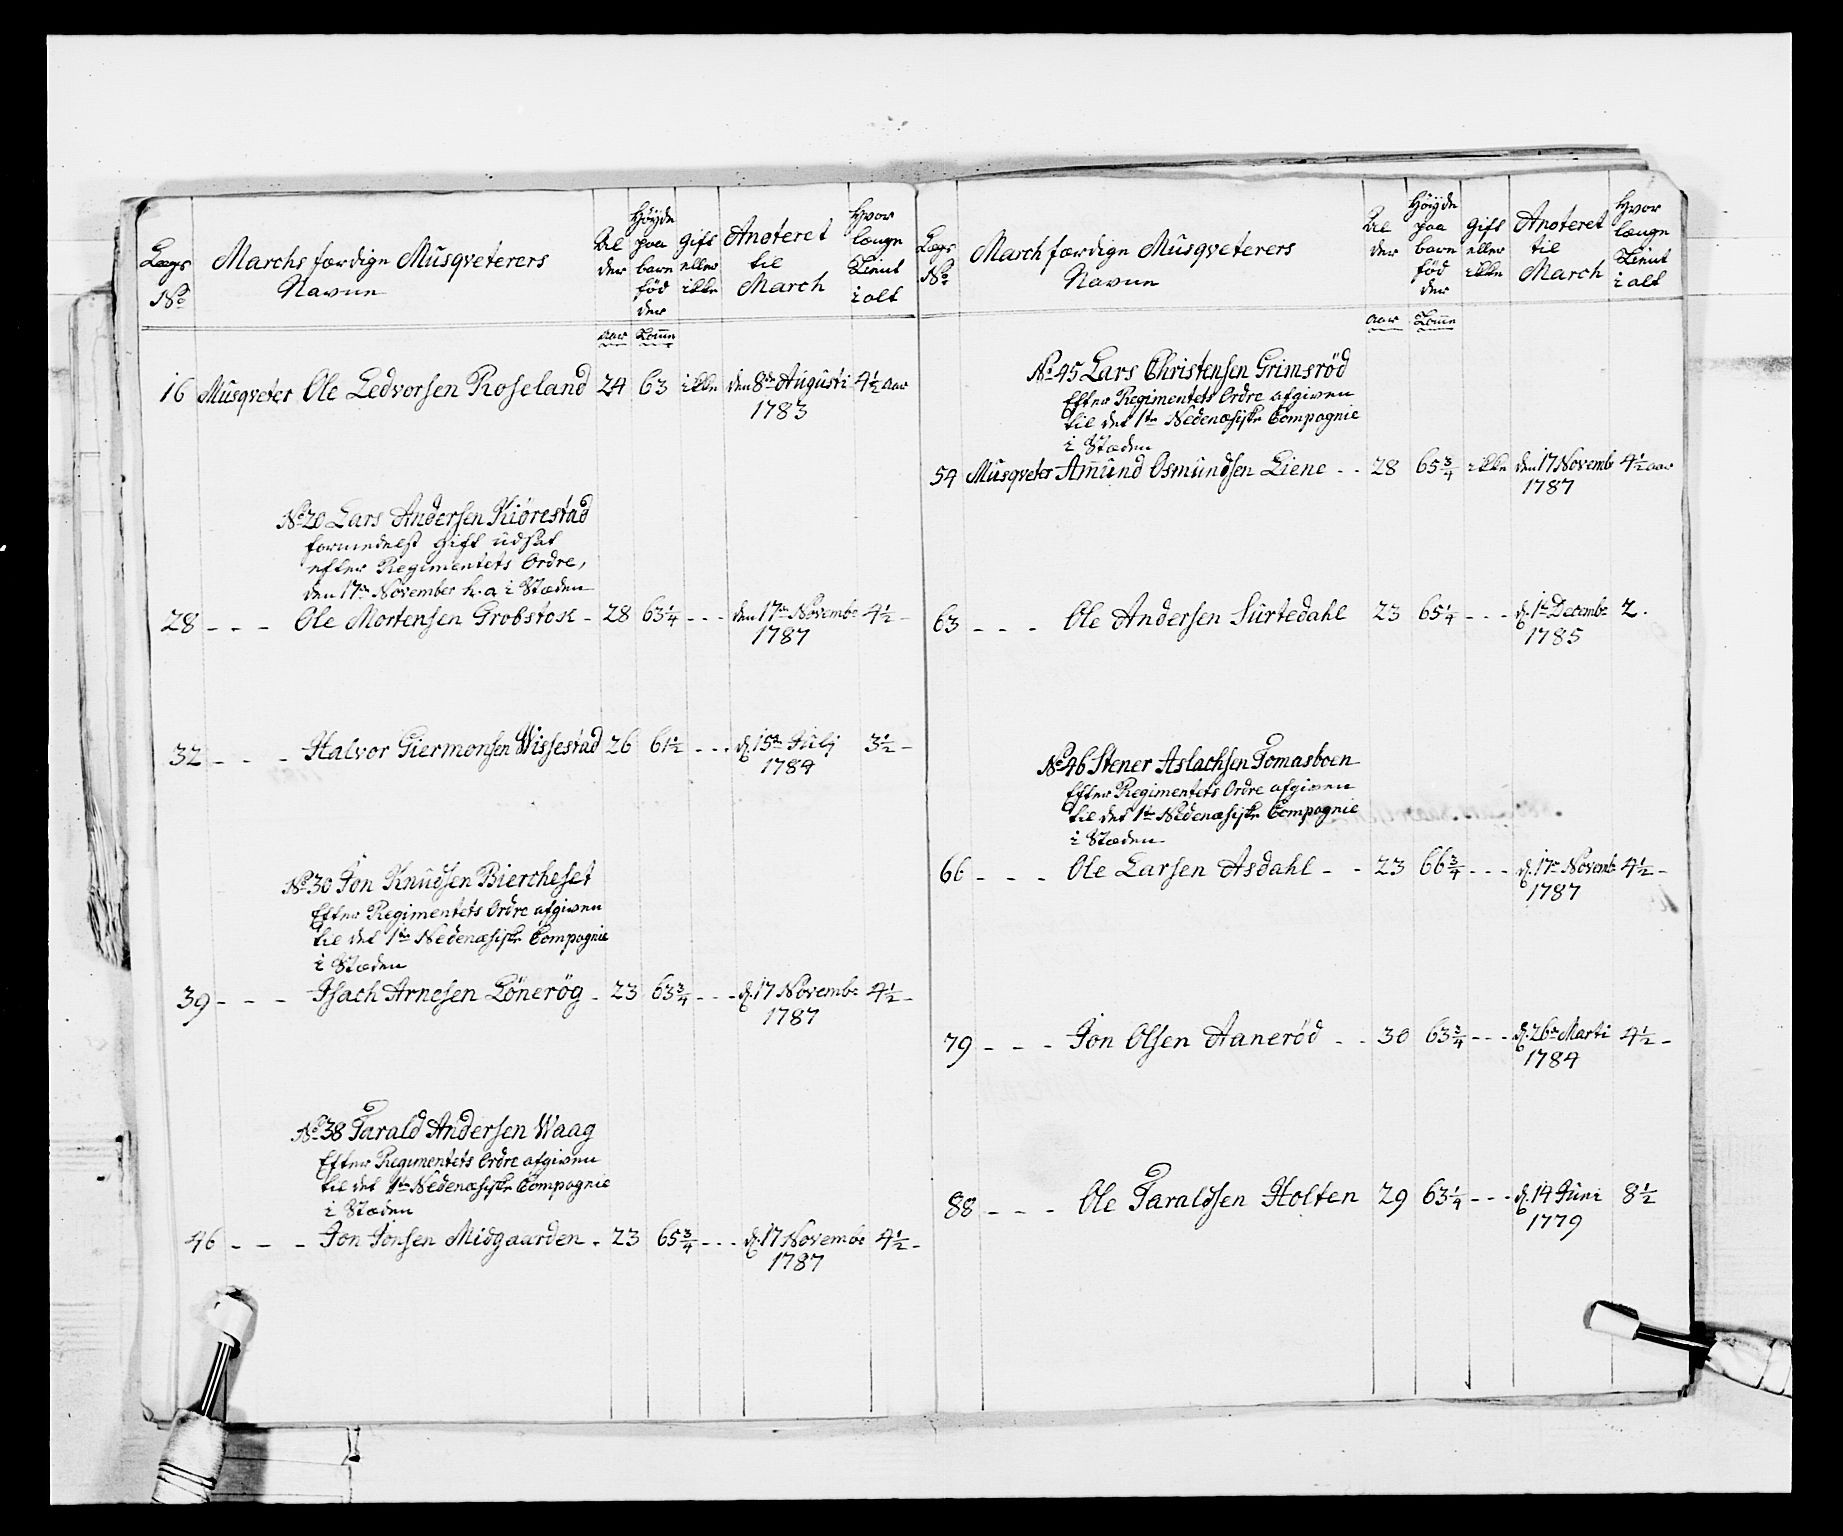 Lægs No
Marchs færdige Musqveterers Navne
Al der
Høyde paa bare fød der
Gift eller ikke
Anoteret til March
Hvor længe Tient i alt
aar Tome
16 Musqveter Ole Ledvorsen Roseland 24 63 ikke den 8de Augusti 4½ aar
1783
No 20 Lars Andersen Kiörestad
formedelst gift udsat
efter Regimentets Ordre,
den 17de November h. a i Stæden
28 - - - Ole Mortensen Grobstok - 28 63¼ - - - den 17de Novembr 4½ -
1787
32 - - - Halvor Giermonsen Wissestad 26 61½ - - - d. 15de Julj 3½ -
1784
No 30 Jon Knudsen Biercheset
Efter Regimentets Ordre afgiven
til det 1te Nedenæsiske Compagnie
i Stæden
39 - - - Isach Arnesen Lönerög - 23 63¾ - - - d. 17 Novembr 4½ -
1787
No 38 Tarald Andersen Waag
Efter Regimentets Ordre afgiven
til det 1te Nedenæsiske Compagnie
i Stæden
46 - - - Jon Jonsen Midgaarden - 23 65¾ - - - d. 17 Novembr 4½ -
1787
Lægs No
March færdige Musqveterers Navne
Al der
Høyde paa bare fød der
Gift eller ikke
Anoteret til March
Hvor længe Tient i alt
aar Tome
No 45 Lars Christensen Grimsröd
Efter Regimentets Ordre afgiven
til det 1te Nedenæsiske Compagnie
i Stæden
54 Musqveter Amund Osmundsen Liene - - 28 65¾ ikke den 17 Novembr 4½ aar
1787
63 - - - Ole Andersen Surtedahl 23 65¼ - - - d. 1te Decembr 2.
1785
No 46 Stener Aslachsen Tomasboen
Efter Regimentets Ordre afgiven
til det 1te Nedenæsiske Compagnie
i Stæden
66 - - - Ole Larsen Asdahl - - 23 66¾ - - - d. 17de Novembr 4½ -
1787
79 - - - Jon Olsen Aaneröd - - 30 63¾ - - - d. 26de Marti 4½ -
1784
88 - - - Ole Taraldsen Holten 29 63¼ - - - d. 14 Juni 8½
1779